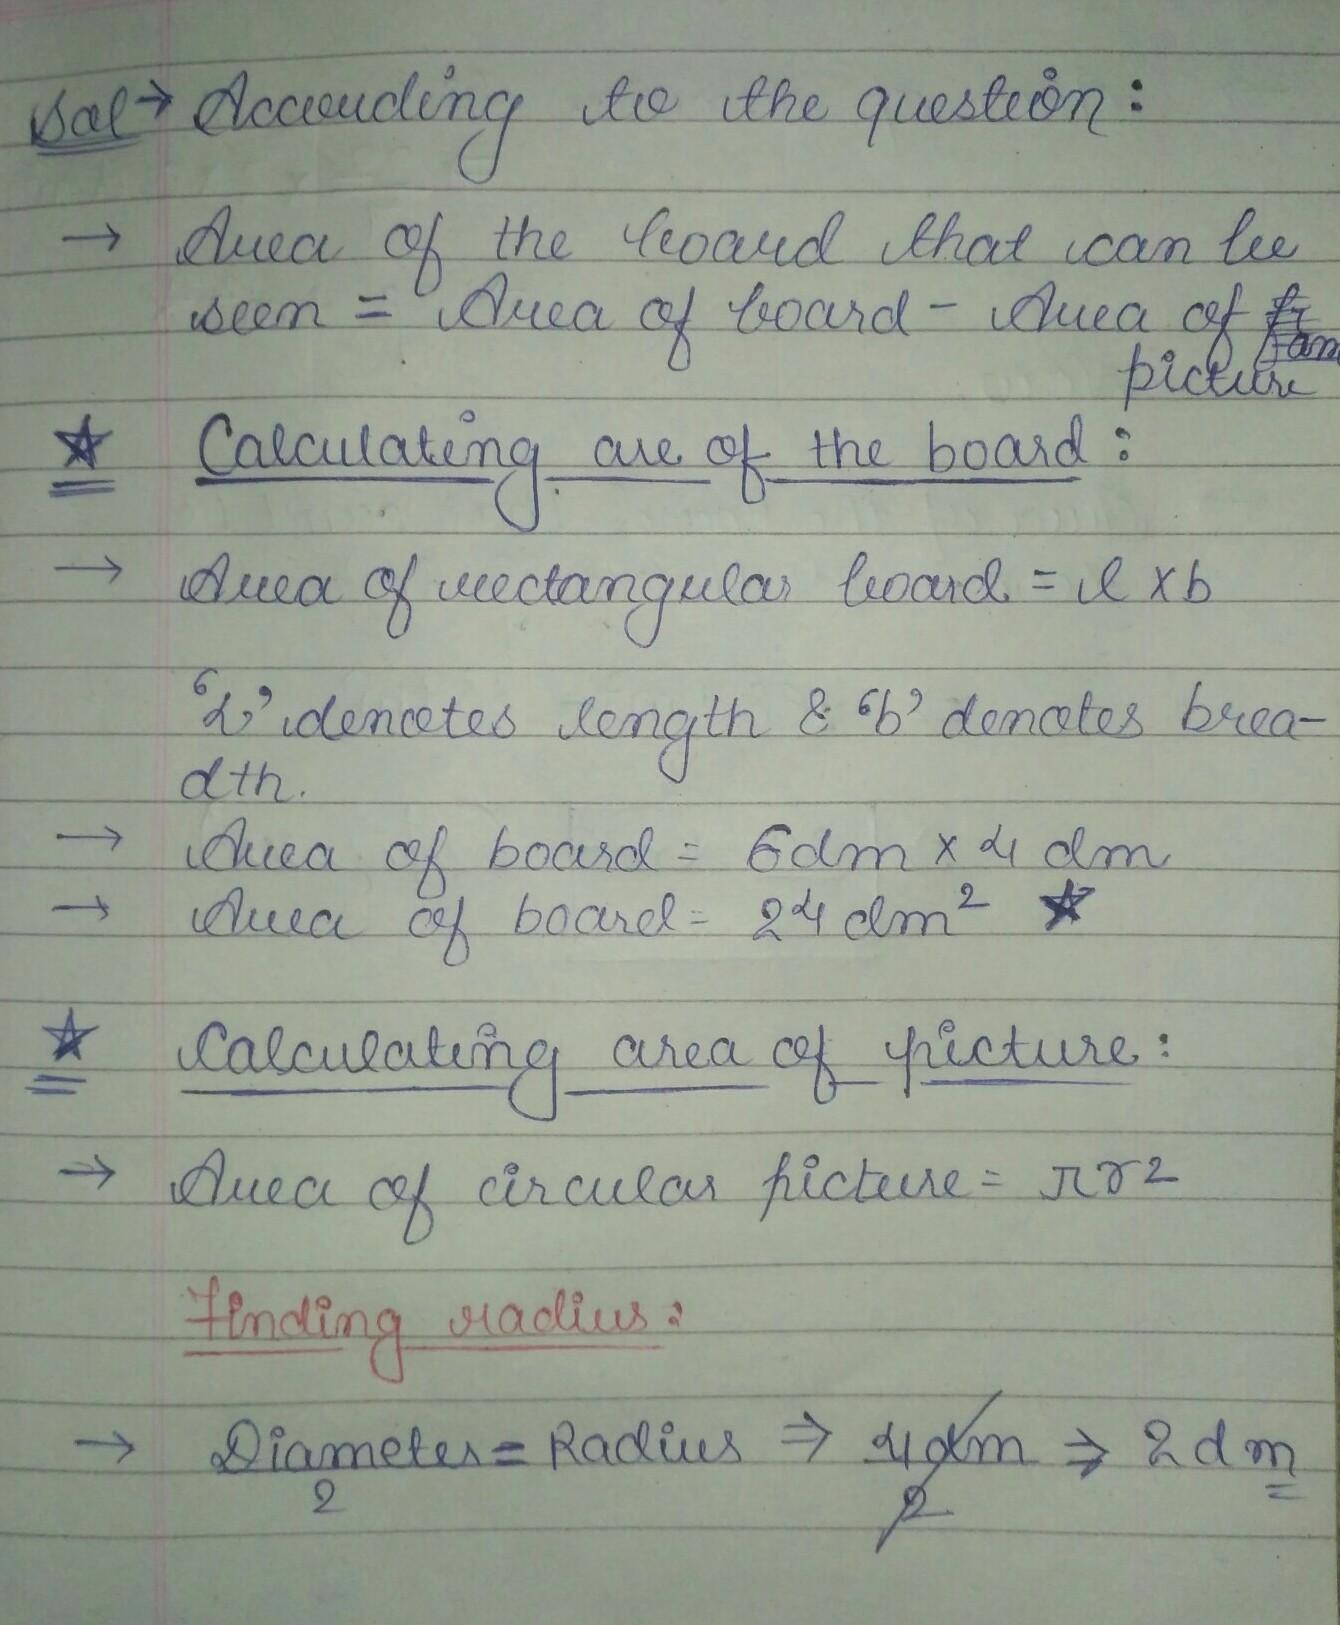 Sol → According to the question:
→ Area of the board that can be
seen = Area of board - Area of
picture
☆ Calculating are of the board:
→ Area of rectangular board = l × b
'L' denotes length & 'b' denotes brea-
dth.
→ Area of board = 6dm × 4 dm
→ Area of board = 24 dm² ☆
☆ Calculating area of picture:
→ Area of circular picture = πr2
Finding radius:
→ Diameter = Radius ⇒ 4dm ⇒ 2dm
2 2